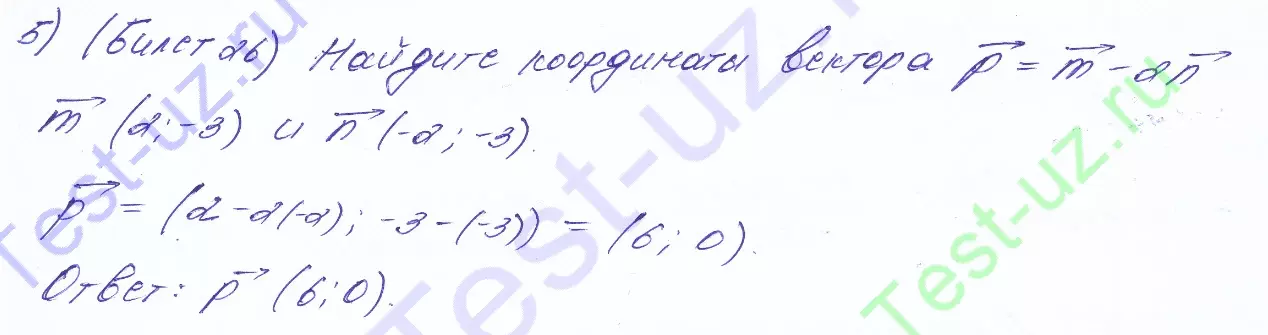 5) (Билет 26) Найдите координаты вектора p⃗ = m⃗ - 2n⃗
m⃗ (2; -3) и n⃗ (-2; -3).
p⃗ = (2 - 2(-2); -3 - (-3)) = (6; 0).
Ответ: p⃗ (6; 0).
Test-uz.ru
Test-uz.ru
Test-uz.ru